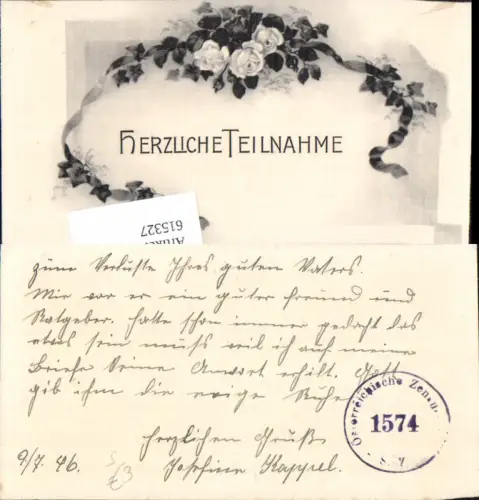 HERZLICHE TEILNAHME
Artikel
615327
zum Verluste Ihres guten Vaters.
Mir war er ein guter Freund und
Ratgeber. hatte schon immer gedacht das
etwas sein muß weil ich auf meine
Briefe keine Anwort erhilt. Gott
gib ihm die ewige Ruhe
herzlichen Gruß
9/7. 46. Josefine Kappel.
Österreichische Zensur
1574